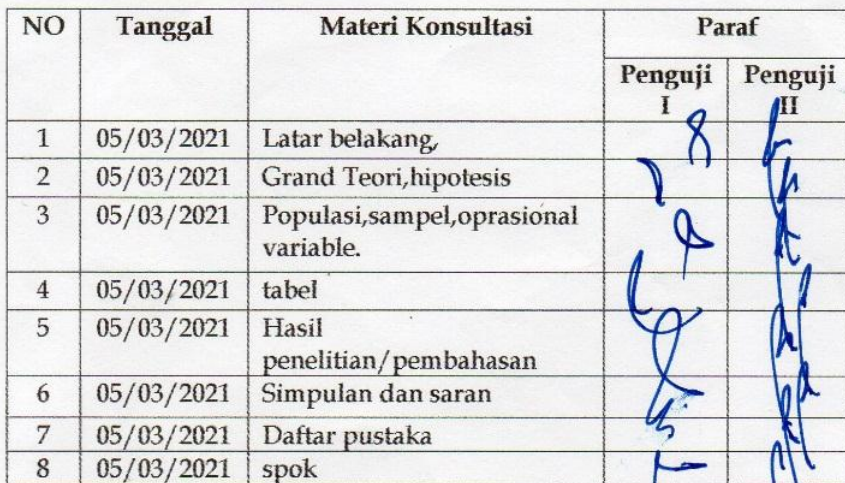 NO Tanggal Materi Konsultasi Paraf
Penguji I Penguji II
1 05/03/2021 Latar belakang,
2 05/03/2021 Grand Teori,hipotesis
3 05/03/2021 Populasi,sampel,oprasional
variable.
4 05/03/2021 tabel
5 05/03/2021 Hasil
penelitian/pembahasan
6 05/03/2021 Simpulan dan saran
7 05/03/2021 Daftar pustaka
8 05/03/2021 spok